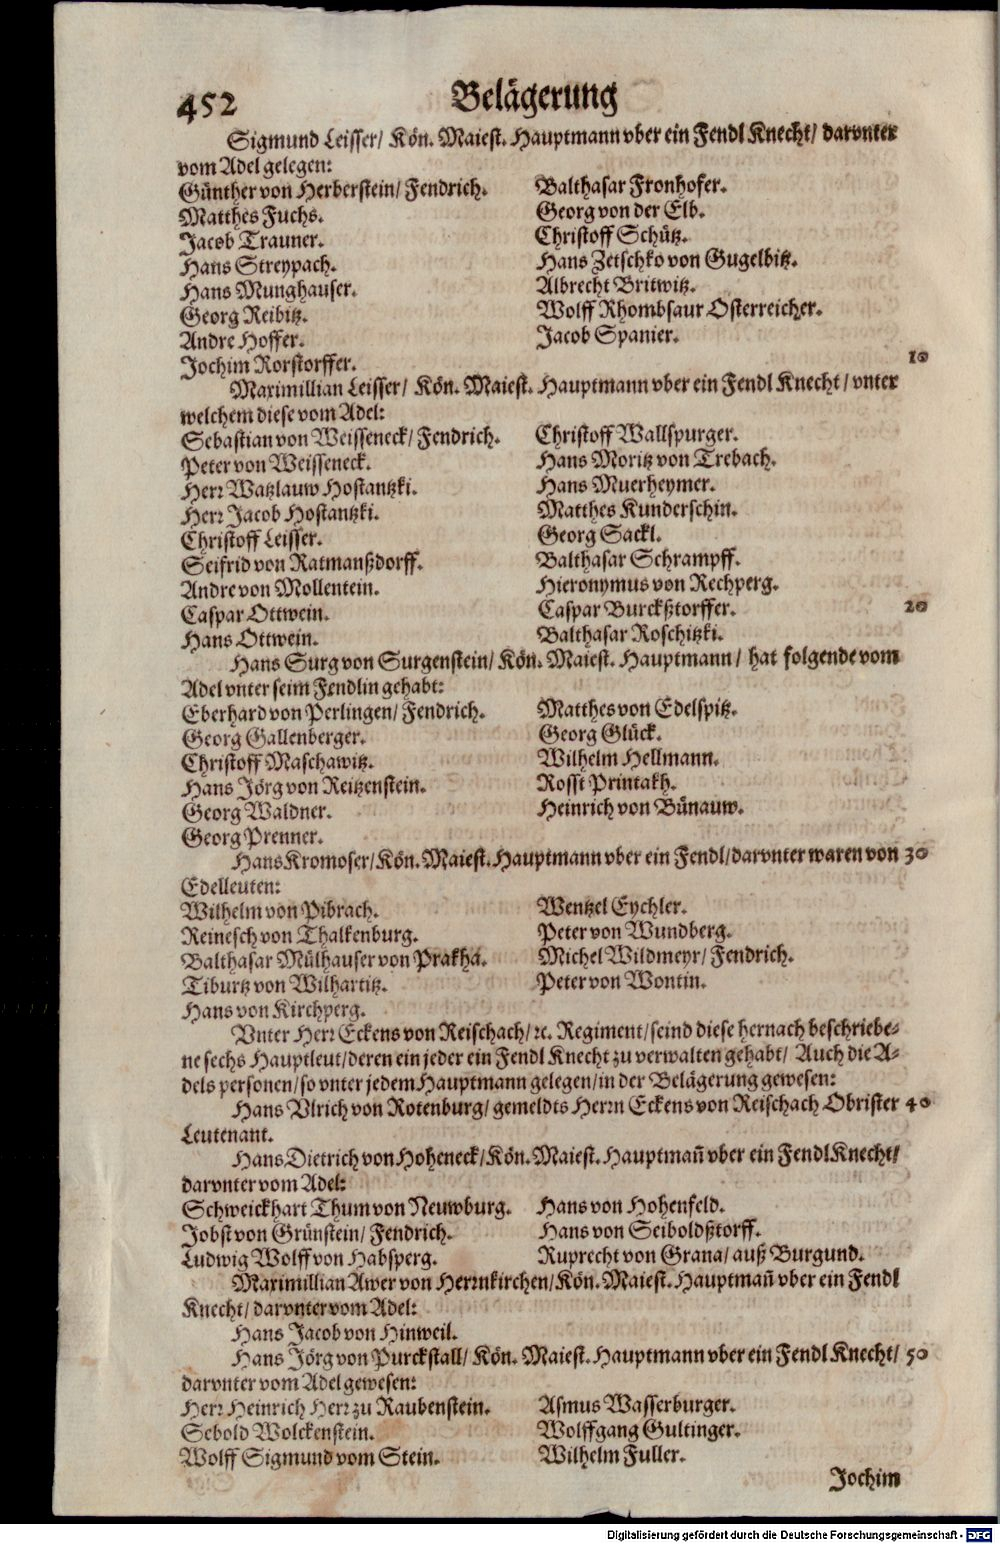 452 Belägerung
Sigmund Leisser/ Kön. Maiest. Hauptmann vber ein Fendl Knecht/ darvnter
vom Adel gelegen:
Günther von Herberstein/ Fendrich. Balthasar Fronhofer.
Matthes Fuchs. Georg von der Elb.
Jacob Trauner. Christoff Schütz.
Hans Streypach. Hans Zetschko von Gugelbitz.
Hans Munghauser. Albrecht Britwitz.
Georg Reibitz. Wolff Rhombsaur Osterreicher.
Andre Hoffer. Jacob Spanier.
Jochim Rorstorffer. 10
Maximillian Leisser/ Kön. Maiest. Hauptmann vber ein Fendl Knecht/ vnter
welchem diese vom Adel:
Sebastian von Weisseneck/ Fendrich. Christoff Wallspurger.
Peter von Weisseneck. Hans Moritz von Trebach.
Herr Watzlauw Hostantzki. Hans Muerheymer.
Herr Jacob Hostantzki. Matthes Kunderschin.
Christoff Leisser. Georg Sackl.
Seifrid von Ratmanßdorff. Balthasar Schrampff.
Andre von Mollentein. Hieronymus von Rechperg.
Caspar Ottwein. Caspar Burckßtorffer. 20
Hans Ottwein. Balthasar Roschitzki.
Hans Surg von Surgenstein/ Kön. Maiest. Hauptmann/ hat folgende vom
Adel vnter seim Fendlin gehabt:
Eberhard von Perlingen/ Fendrich. Matthes von Edelspitz.
Georg Gallenberger. Georg Glück.
Christoff Maschawitz. Wilhelm Hellmann.
Hans Jörg von Reitzenstein. Rosst Printakh.
Georg Waldner. Heinrich von Bünauw.
Georg Prenner.
Hans Kromoser/ Kön. Maiest. Hauptmann vber ein Fendl/ darvnter waren von 30
Edelleuten:
Wilhelm von Pibrach. Wentzel Eychler.
Reinesch von Thalkenburg. Peter von Wundberg.
Balthasar Mülhauser von Prakha. Michel Wildmeyr/ Fendrich.
Tiburtz von Wilhartitz. Peter von Wontin.
Hans von Kirchperg.
Vnter Herr Eckens von Reischach/ ꝛc. Regiment/ seind diese hernach beschriebe-
ne sechs Hauptleut/ deren ein jeder ein Fendl Knecht zu verwalten gehabt/ Auch die A-
dels personen/ so vnter jedem Hauptmann gelegen/ in der Belägerung gewesen:
Hans Vlrich von Rotenburg/ gemeldts Herrn Eckens von Reischach Obrister 40
Leutenant.
Hans Dietrich von Hoheneck/ Kön. Maiest. Hauptmañ vber ein Fendl Knecht/
darvnter vom Adel:
Schweickhart Thum von Neuwburg. Hans von Hohenfeld.
Jobst von Grünstein/ Fendrich. Hans von Seiboldßtorff.
Ludwig Wolff von Habsperg. Ruprecht von Grana/ auß Burgund.
Maximillian Awer von Herrnkirchen/ Kön. Maiest. Hauptmañ vber ein Fendl
Knecht/ darvnter vom Adel:
Hans Jacob von Hinweil.
Hans Jörg von Purckstall/ Kön. Maiest. Hauptmann vber ein Fendl Knecht/ 50
darvnter vom Adel gewesen:
Herr Heinrich Herr zu Raubenstein. Asmus Wasserburger.
Sebold Wolckenstein. Wolffgang Gultinger.
Wolff Sigmund vom Stein. Wilhelm Fuller.
Jochim
Digitalisierung gefördert durch die Deutsche Forschungsgemeinschaft - DFG